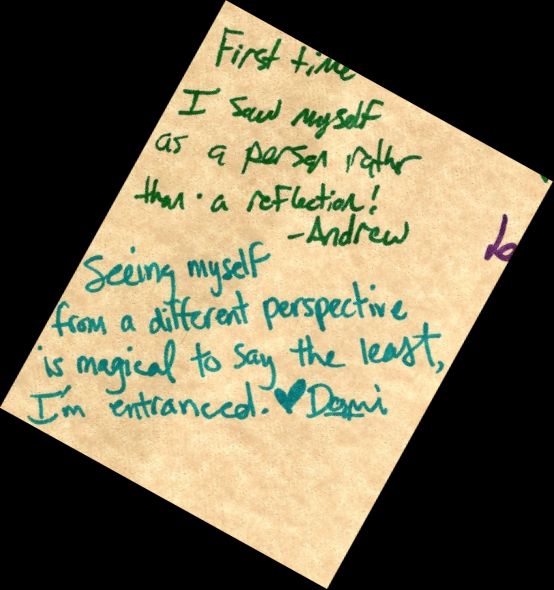 First time
I saw myself
as a person rather
than a reflection!
-Andrew
Seeing myself
from a different perspective
is magical to say the least,
I'm entranced. ♥ Domi